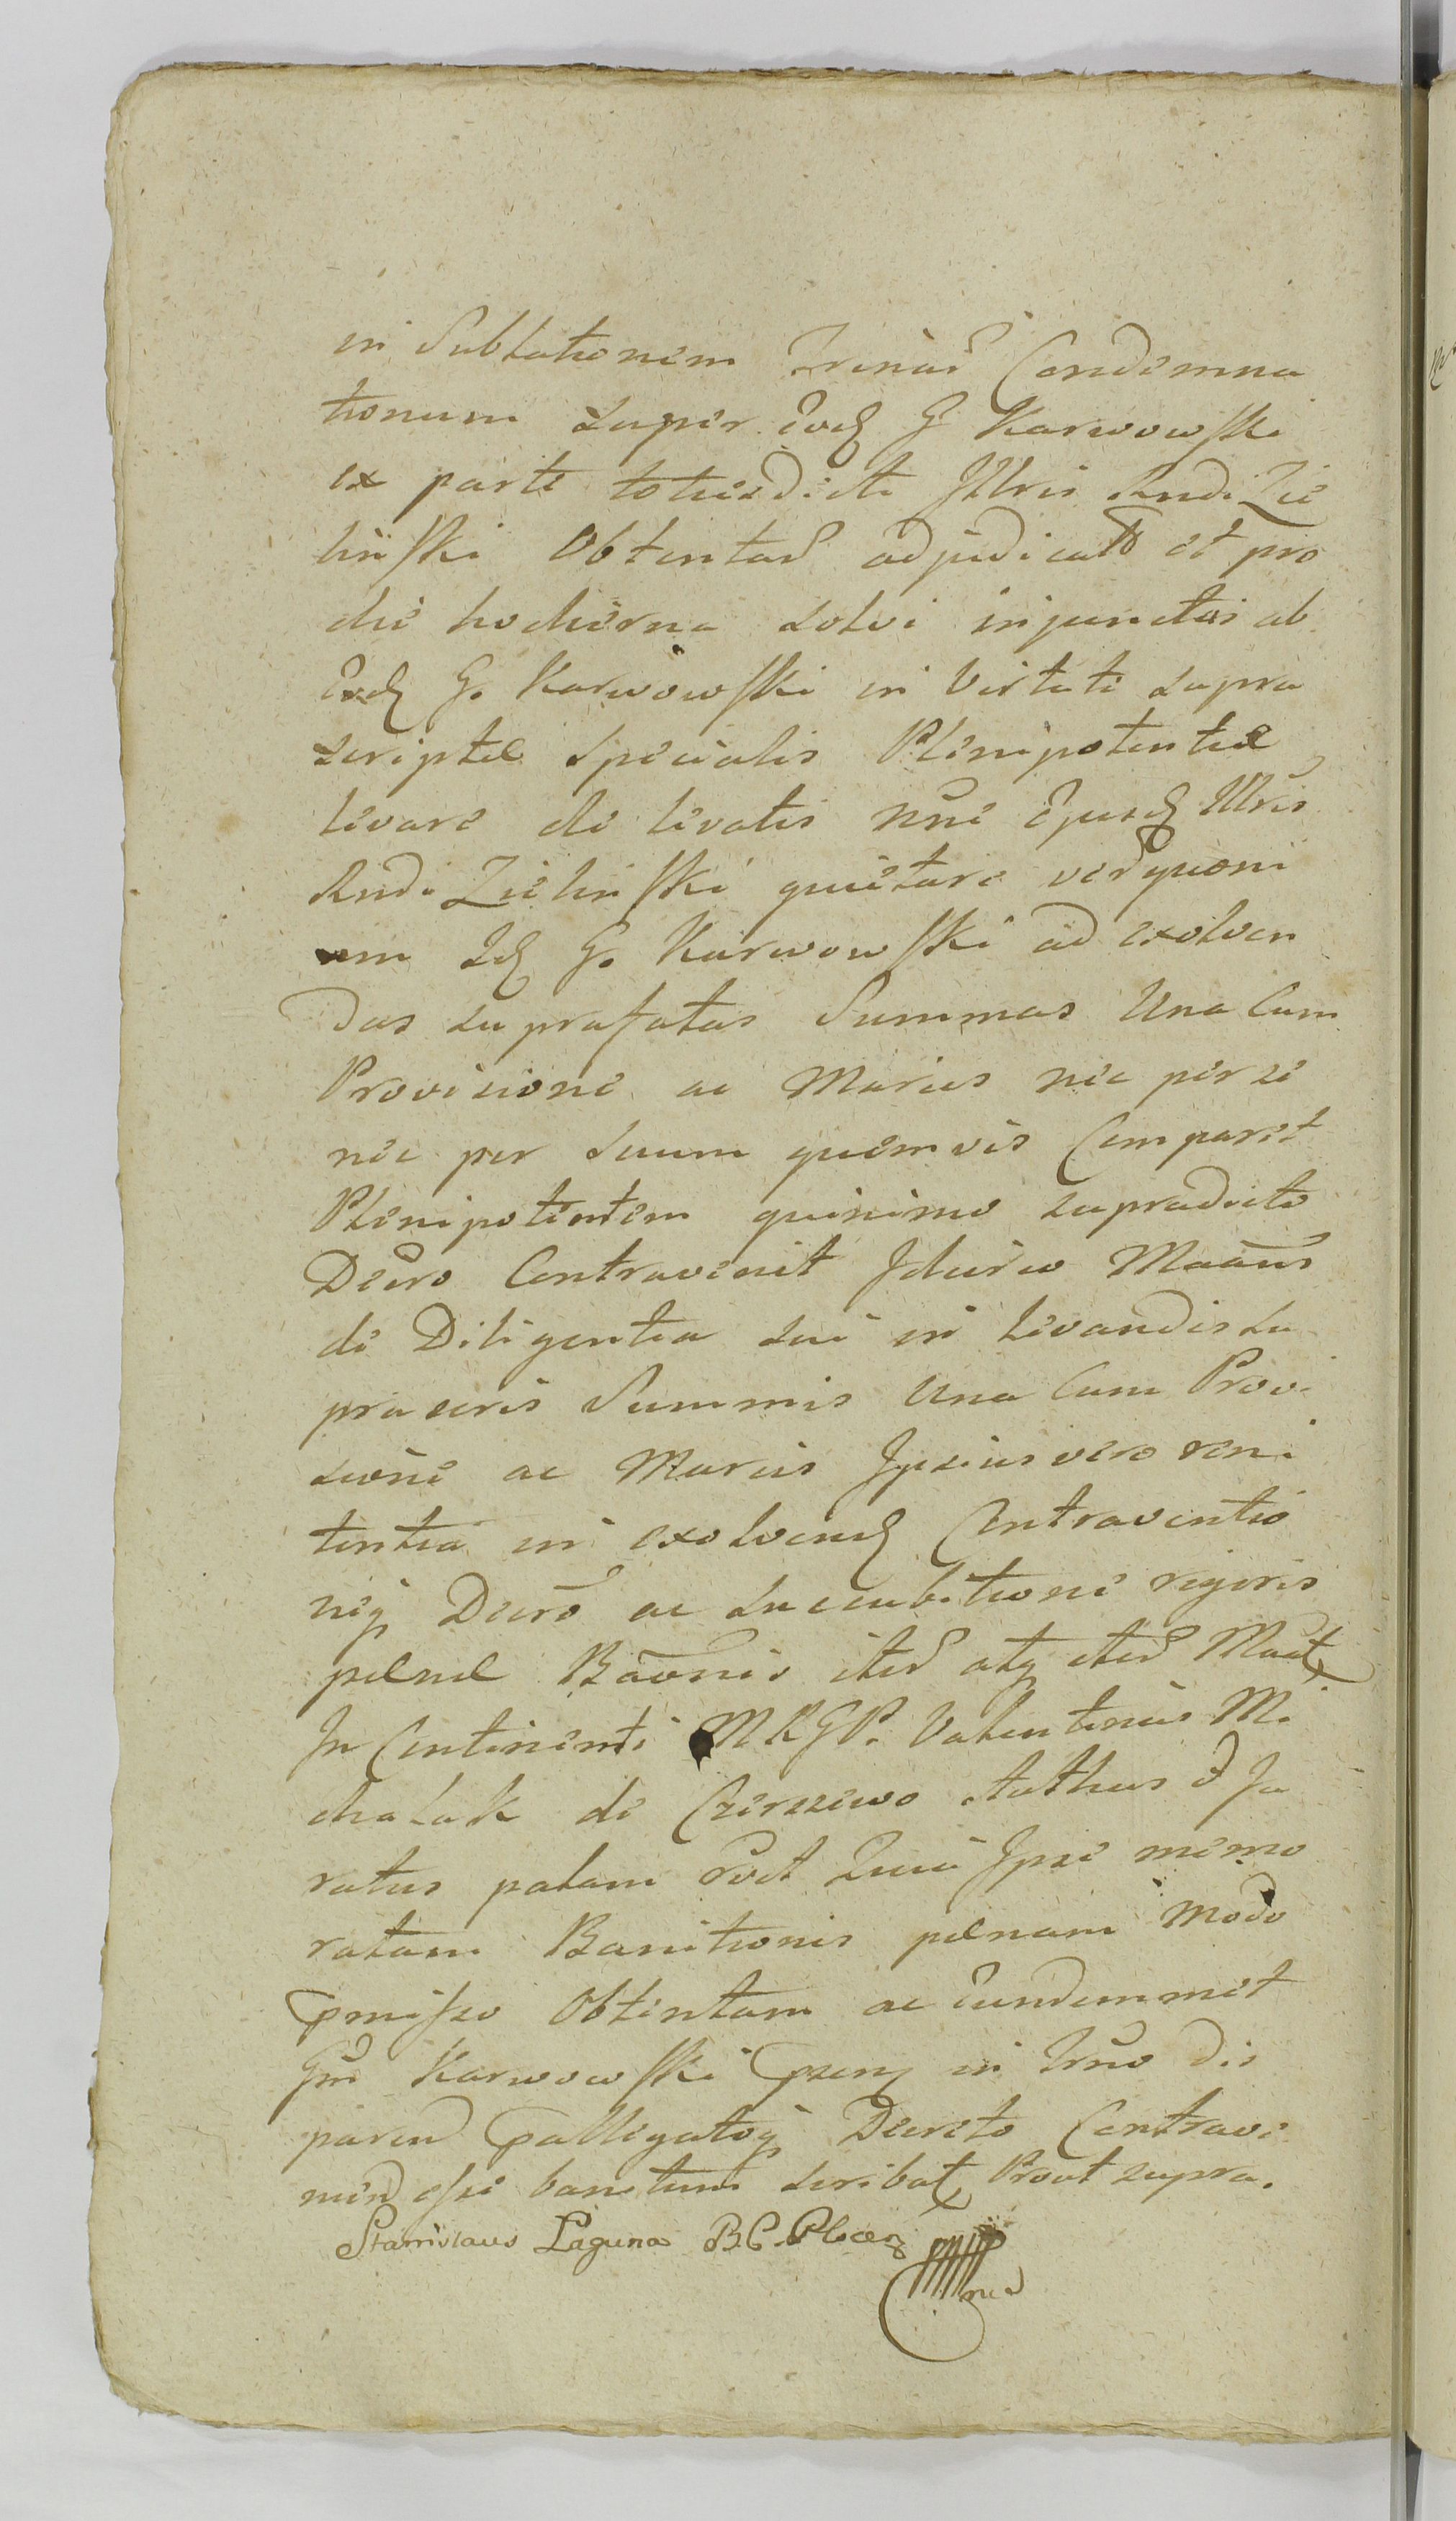 in Sublationem Trinar Condemna
tionum super Eod G Karwowski
ex parte totiesdicti Illris Rndi Zie
linski Obtentar adjudicat et pro
die hodierna solvi injunctas ab
Eod G. Karwowski in Virtute supra
scriptæ Specialis Plenipotentiæ
levare de levatis nne Ejusd Illris
Rndi Zielinski quietare verquoni
am Id G. Karwowski ad exolven
das suprafatas Summas Una Cum
Provisione ac Marcis nec per se
nec per suum quemvis Comparet
Plenipotentem quinimo supradicto
Decro Contravenit Idcirco Maans
de Diligentia sui in levandis su
prascris Summis Una Cum Provi
sione ac Marcis Ipsius vero reni
tentia in exolvend Contraventio
neq Decro ac Succubitione rigoris
pænæ Baonis iter atq iter Mact
In Continenti MRGP. Valentinus Mi
chalak de Czerzewo Juratus
ratus palam rect Quia Ipse memo
ratam Banitionis pænam modo
pmisso Obtentam ac Eundemmet
Gm Karwowski in Trno dis
paren palligatoq Decreto Contrave
nien esse banitum scribat, Prout supra.
Stanislaus Laguna B.C. Plocen